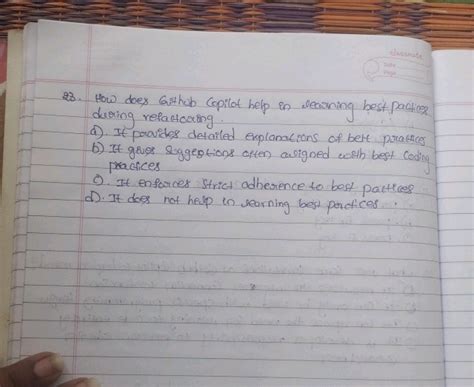 classmate
Date
Page
23. How does Github Copilot help in learning best pactices
during refactoring.
a). It provides detailed explanations of best practices
b) It gives suggestions often assigned with best coding
practices
c). It enforces strict adherence to best pactices
d). It does not help in learning best practices.